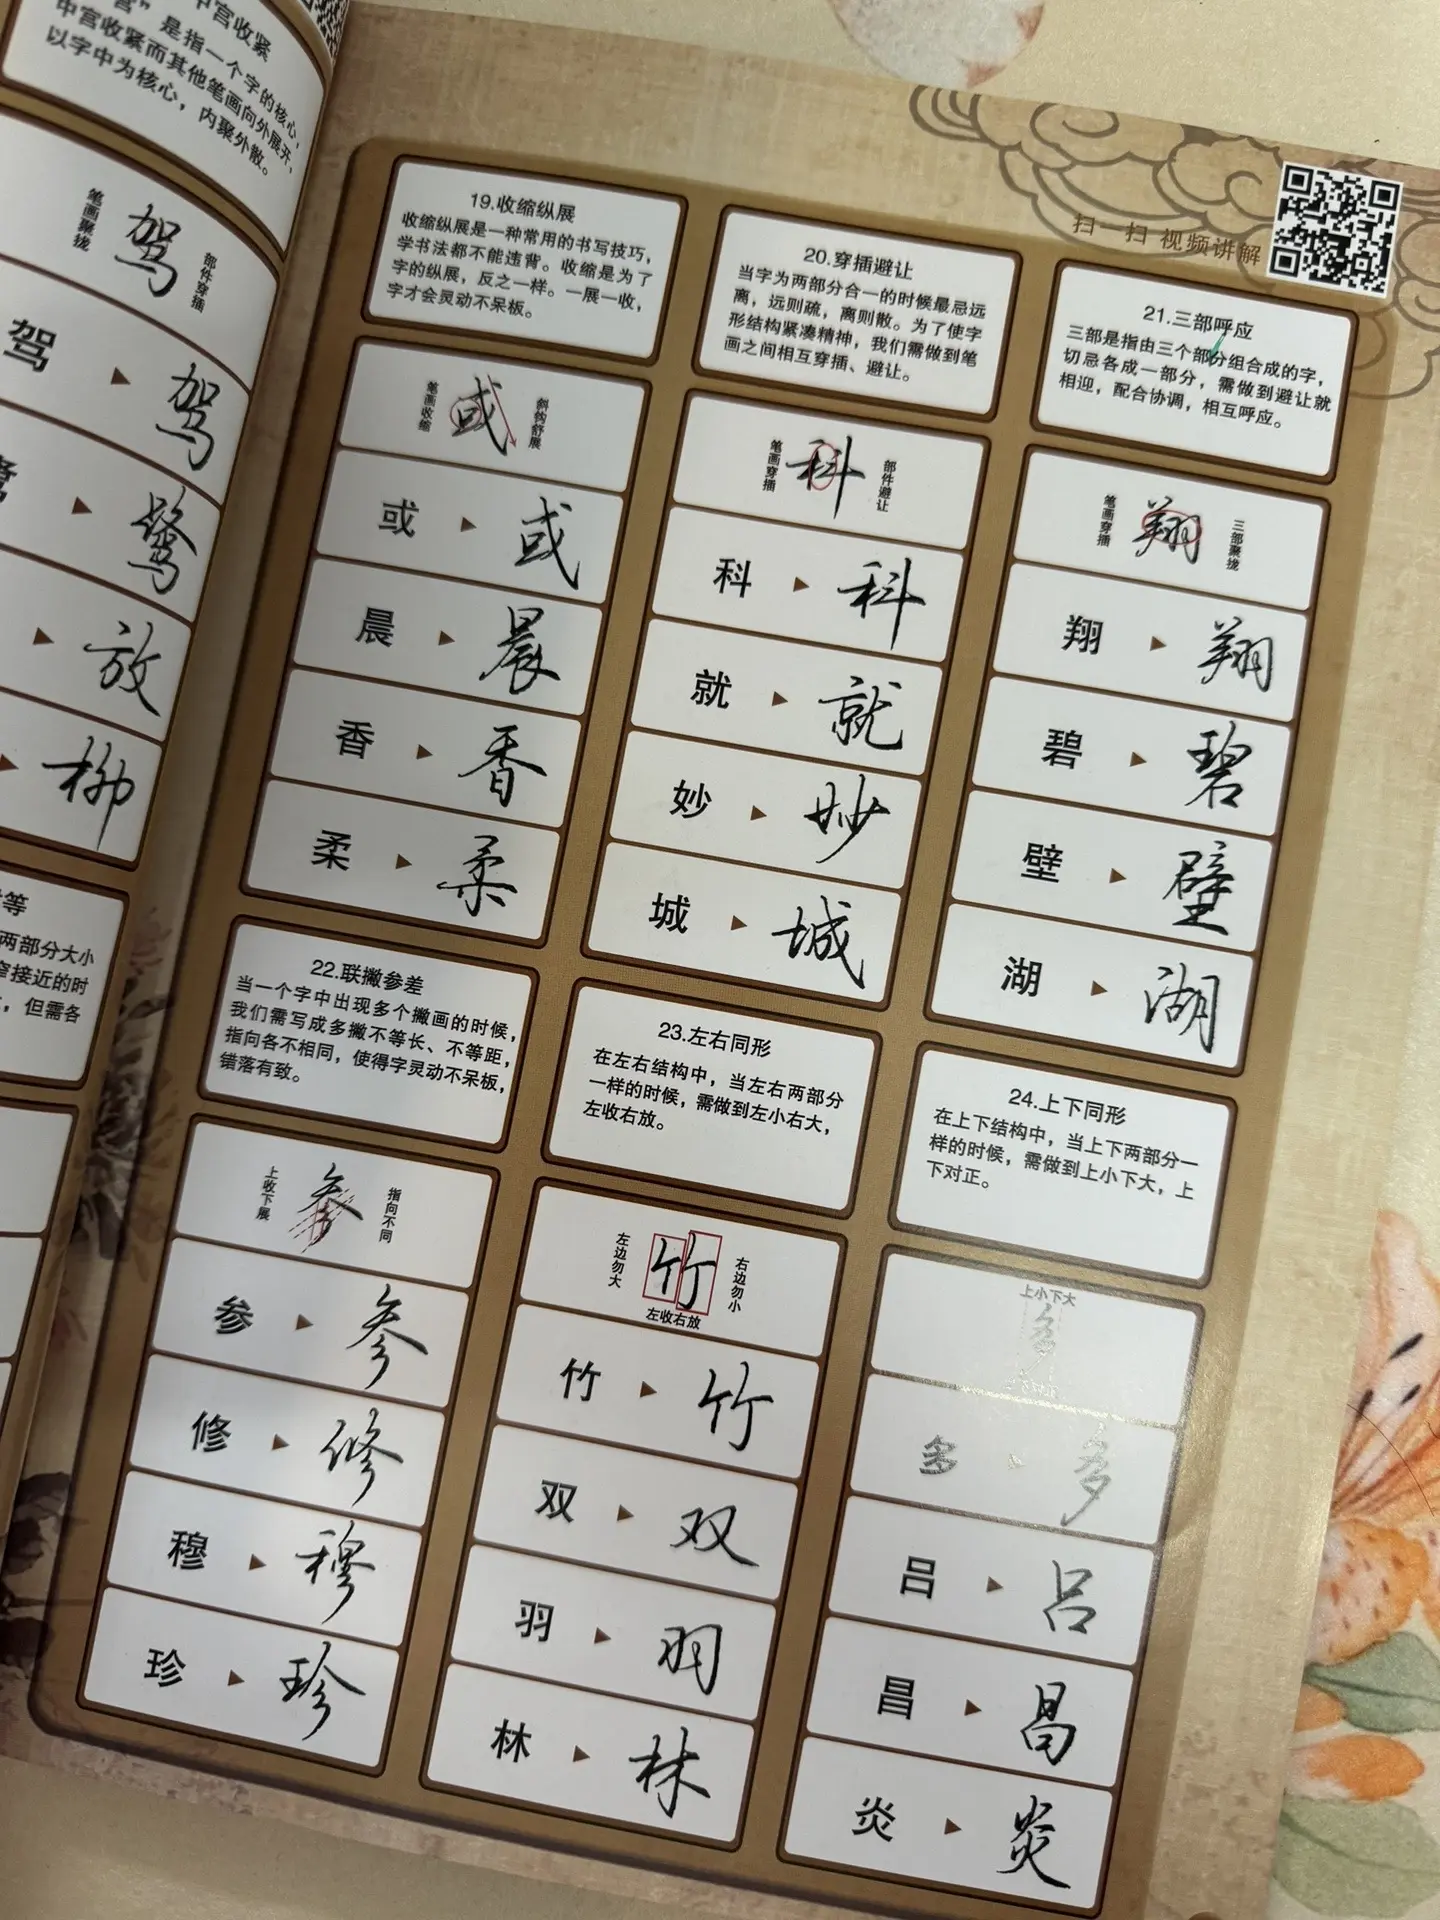 中宫收紧
”是指一个字的核心，
中宫收紧而其他笔画向外展开，
以字中为核心，内聚外散。
笔画聚拢
驾
部件穿插
驾 驾
鹜
放
柳
等
两部分大小
窄接近的时
，但需各
扫一扫 视频讲解
19.收缩纵展
收缩纵展是一种常用的书写技巧，
学书法都不能违背。收缩是为了
字的纵展，反之一样。一展一收，
字才会灵动不呆板。
笔画收缩
或
斜钩舒展
或 或
晨 晨
香 香
柔 柔
20.穿插避让
当字为两部分合一的时候最忌远
离，远则疏，离则散。为了使字
形结构紧凑精神，我们需做到笔
画之间相互穿插、避让。
笔画穿插
科
部件避让
科 科
就 就
妙 妙
城 城
21.三部呼应
三部是指由三个部分组合成的字，
切忌各成一部分，需做到避让就
相迎，配合协调，相互呼应。
笔画穿插
翔
三部聚拢
翔 翔
碧 碧
壁 壁
湖 湖
22.联撇参差
当一个字中出现多个撇画的时候，
我们需写成多撇不等长、不等距，
指向各不相同，使得字灵动不呆板，
错落有致。
上收下展
参
指向不同
参 参
修 修
穆 穆
珍 珍
23.左右同形
在左右结构中，当左右两部分
一样的时候，需做到左小右大，
左收右放。
左边勿大
竹
右边勿小
左收右放
竹 竹
双 双
羽 羽
林 林
24.上下同形
在上下结构中，当上下两部分一
样的时候，需做到上小下大，上
下对正。
上小下大
多
多 多
吕 吕
昌 昌
炎 炎